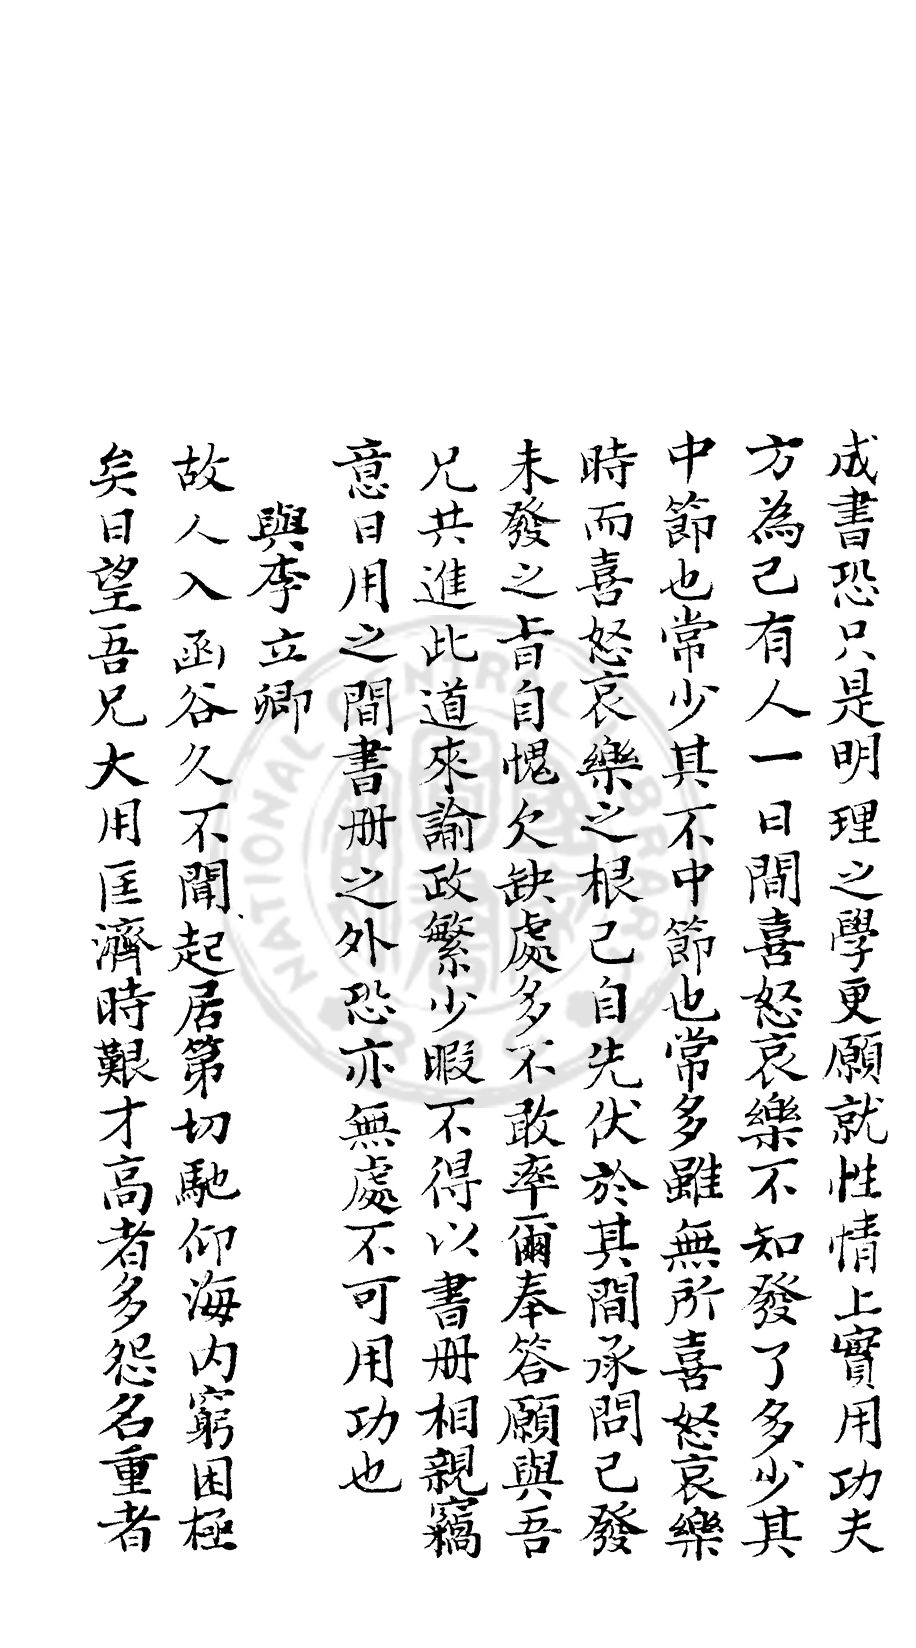 成書恐只是明理之學更願就性情上實用功夫
方為己有人一日間喜怒哀樂不知發了多少其
中節也常少其不中節也常多雖無所喜怒哀樂
時而喜怒哀樂之根已自先伏於其間承問已發
未發之旨自愧欠缺處多不敢率爾奉答願與吾
兄共進此道來諭政繁少暇不得以書册相親竊
意日用之間書册之外恐亦無處不可用功也
與李立卿
故人入函谷久不聞起居第切馳仰海内窮困極
矣日望吾兄大用匡濟時艱才高者多怨名重者
NATIONAL CENTRAL LIBRARY